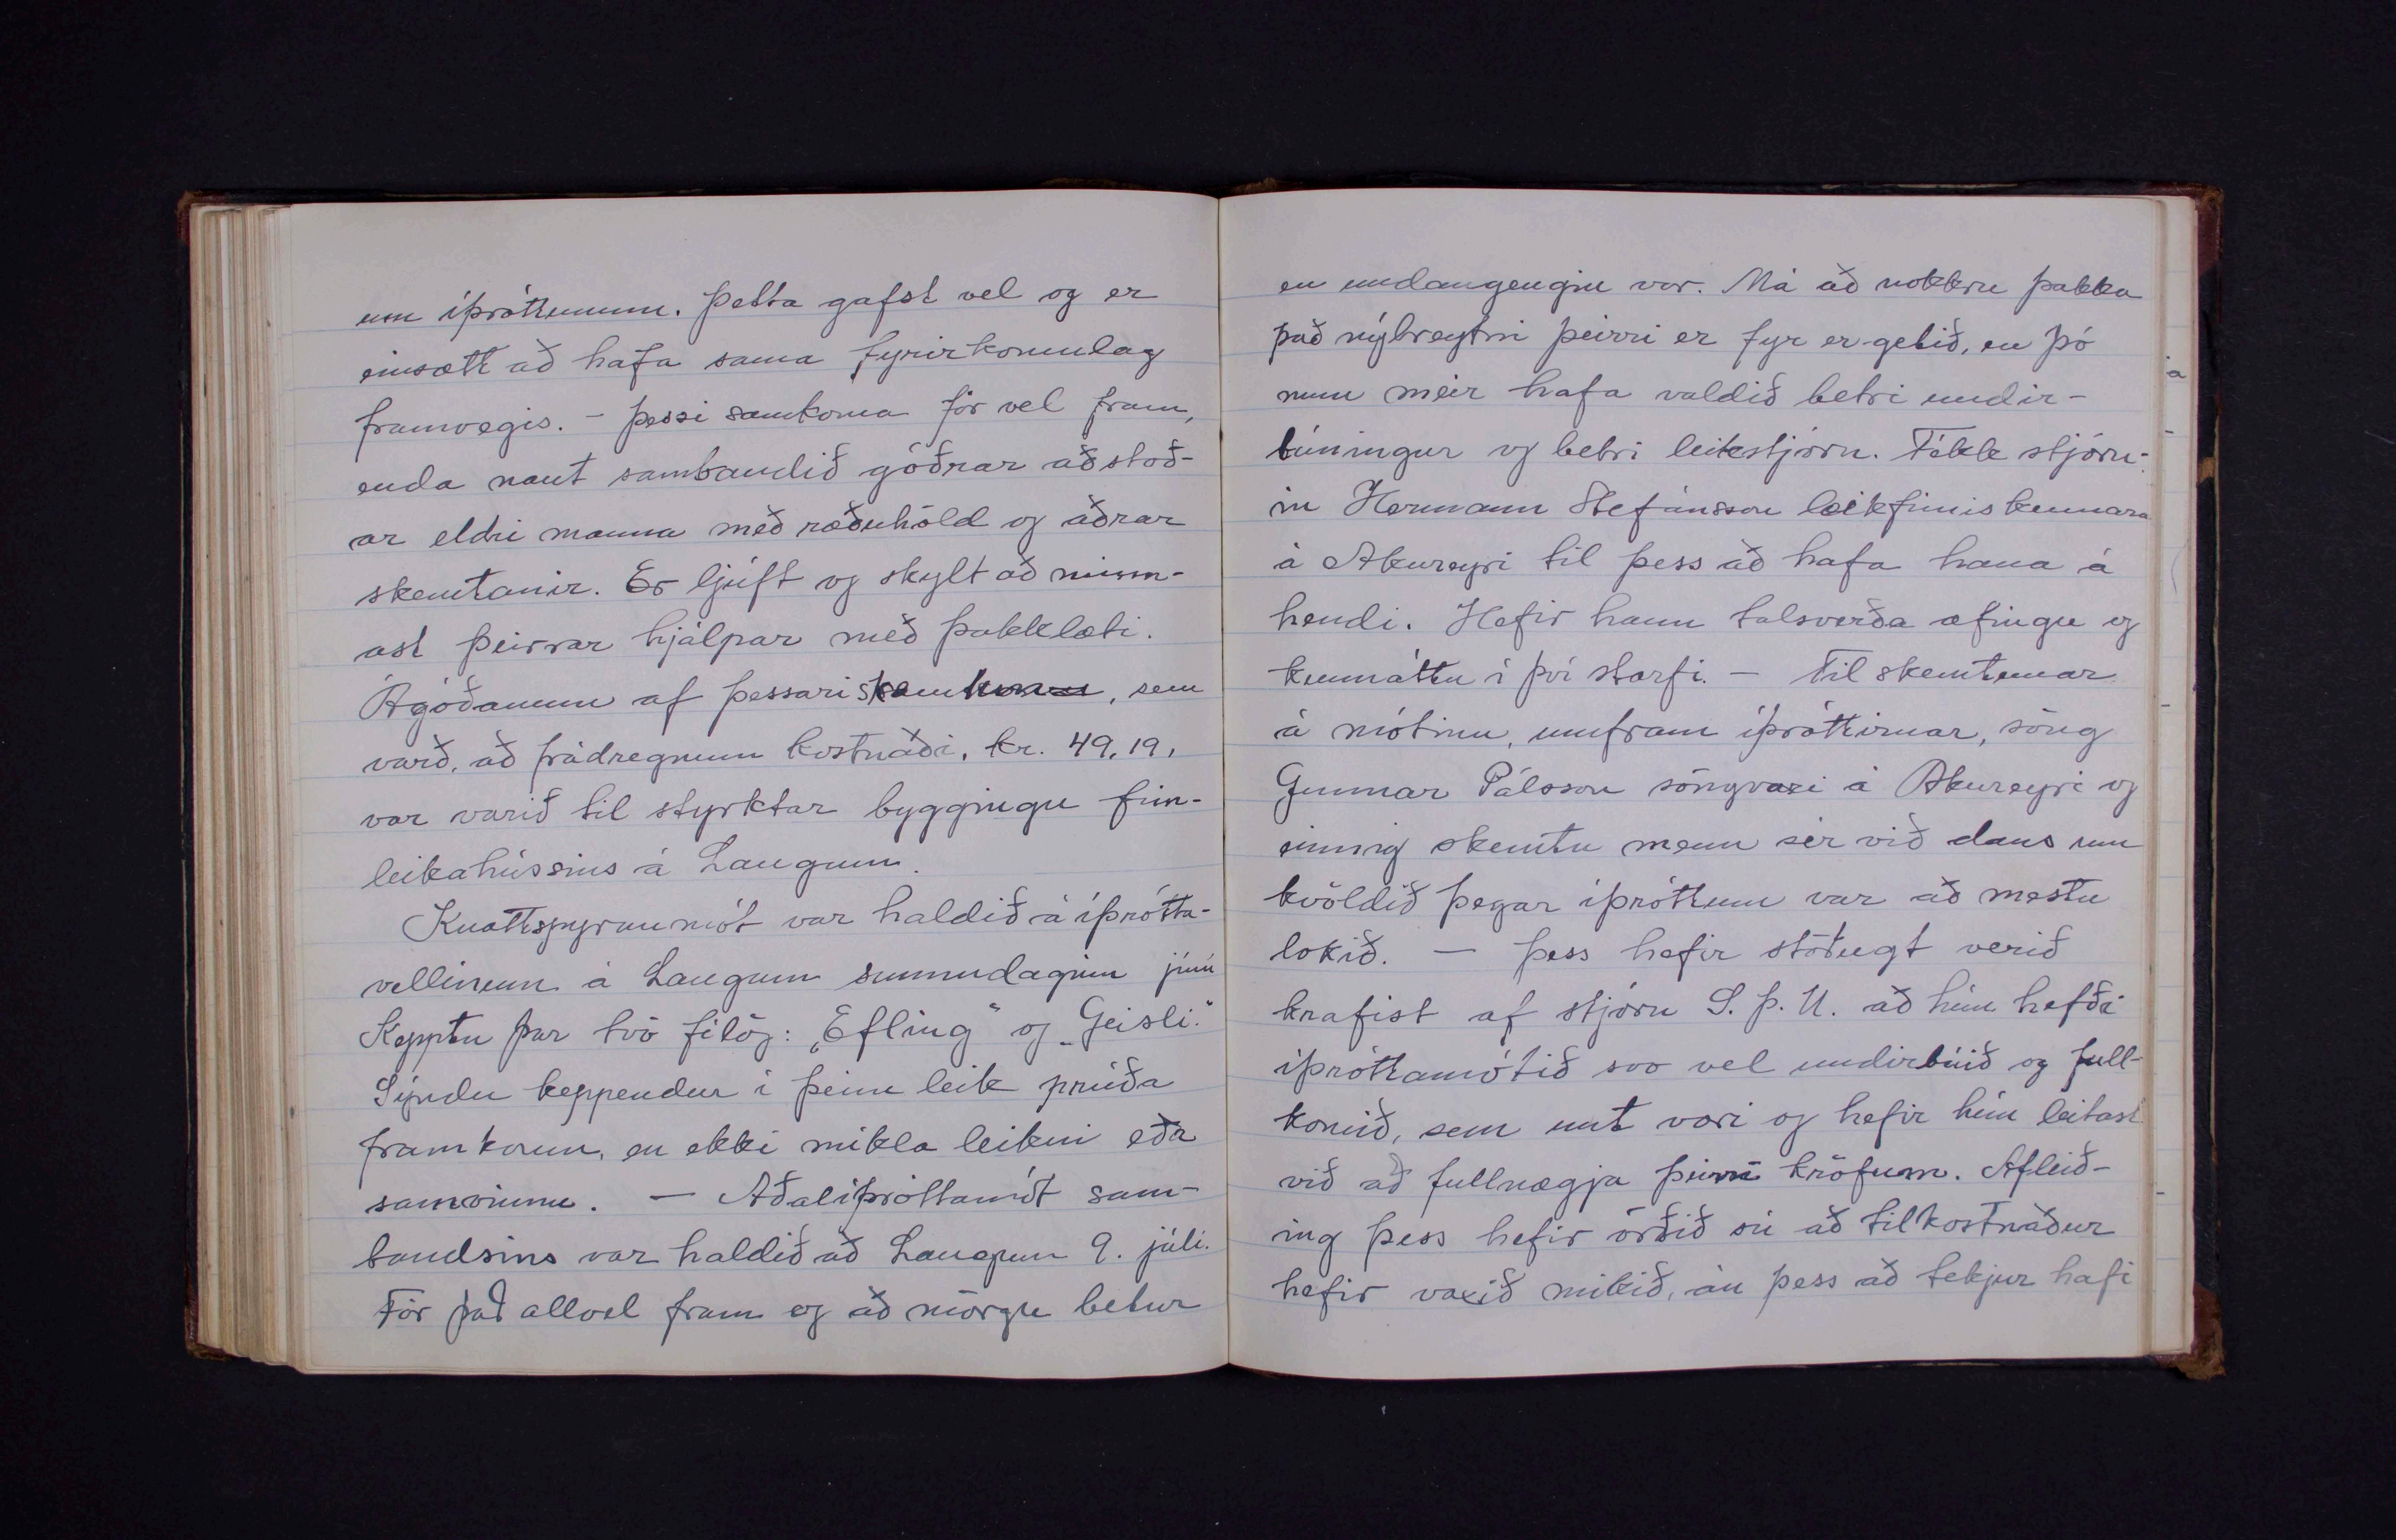 um íþróttunum. Þetta gafst vel og er
einsætt að hafa sama fyrirkomulag
framvegis. - Þessi samkoma fór vel fram,
enda naut sambandið góðrar aðstoð-
ar eldri manna með ræðuhöld og aðrar
skemtanir. Er ljúft og skylt að minn-
ast þeirrar hjálpar með þakklæti.
Ágóðanum af þessari, sem
varð, að frádregnum kostnaði, kr. 49,19,
var varið til styrktar byggingu fim-
leikahússins á Laugum.
Knattspyrnumót var haldið á íþrótta-
vellinum á Laugum sunnudaginn júní
Kepptu þar tvö félög: „Efling" og „Geisli."
Sýndu keppendur í þeim leik prúða
framkomu, en ekki mikla leikni eða
samvinnu. — Aðalíþróttamót sam-
bandsins var haldið að Laugum 9. júlí.
Fór það allvel fram og að mörgu betur
en undangengin vor. Má að nokkru þakka
það nýbreytni þeirri er fyr er getið, en þó
mun meir hafa valdið betri undir-
búningur og betri leikstjórn. Fékk stjórn-
in Hermann Stefánsson leikfimiskennara
á Akureyri til þess að hafa hana á
hendi. Hefir hann talsverða æfingu og
kunnáttu í því starfi. — Til skemtunar
á mótinu, umfram íþróttirnar, söng
Gunnar Pálsson söngvari á Akureyri og
einnig skemtu menn sér við dans um
kvöldið þegar íþróttum var að mestu
lokið. — Þess hefir stöðugt verið
krafist af stjórn S.Þ.U. að hún hefði
íþróttamótið svo vel undirbúið og full-
komið, sem unt væri og hefir hún leitast
við að fullnægja þeirri kröfum. Afleið-
ing þess hefir orðið sú að tilkostnaður
hefir vaxið mikið, án þess að tekjur hafi